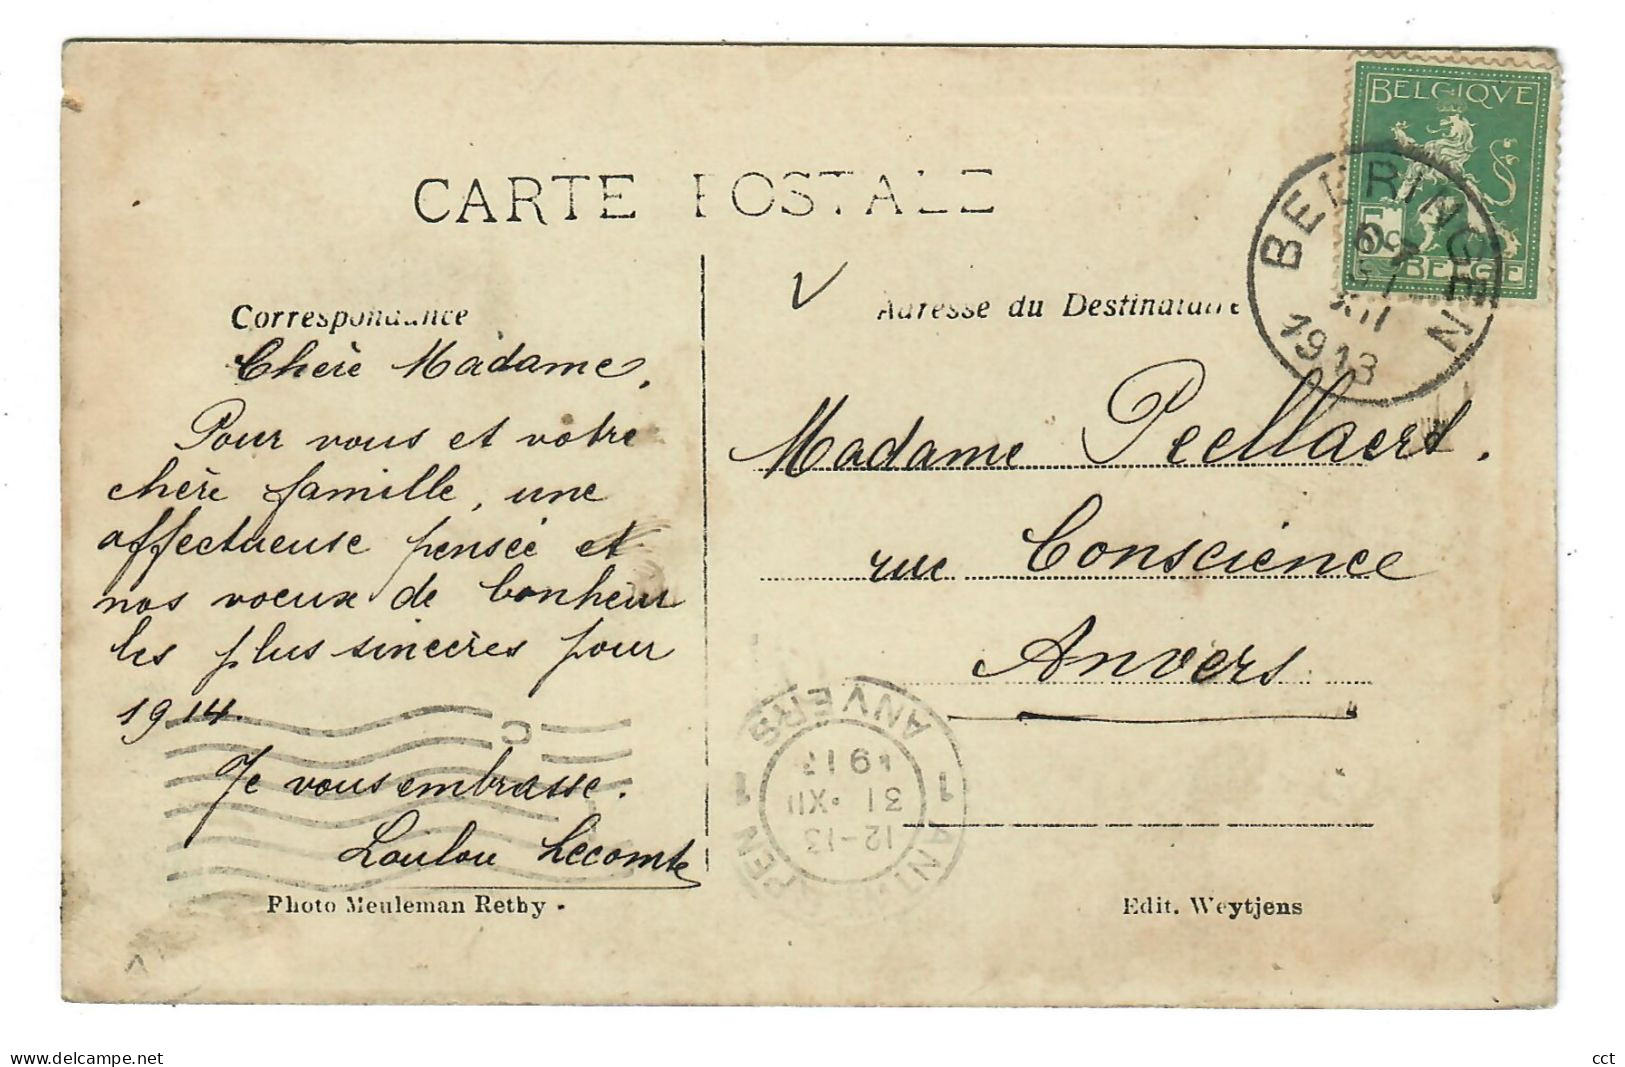 CARTE POSTALE
Correspondance
Chère Madame,
Pour vous et votre
chère famille, une
affectueuse pensée et
nos voeux de bonheur
les plus sincères pour
1914.
Je vous embrasse.
Loulou Lecomte
Photo Meuleman Rethy -
V
Adresse du Destinataire
Madame Peellaert.
rue Conscience
Anvers
Edit. Weytjens
BELGIQVE
5c
BELGIE
BEERINGEN
XII
1913
ANTWERPEN 1
1 ANVERS
12-13
31 •XII
1913
delcampe.net
cct